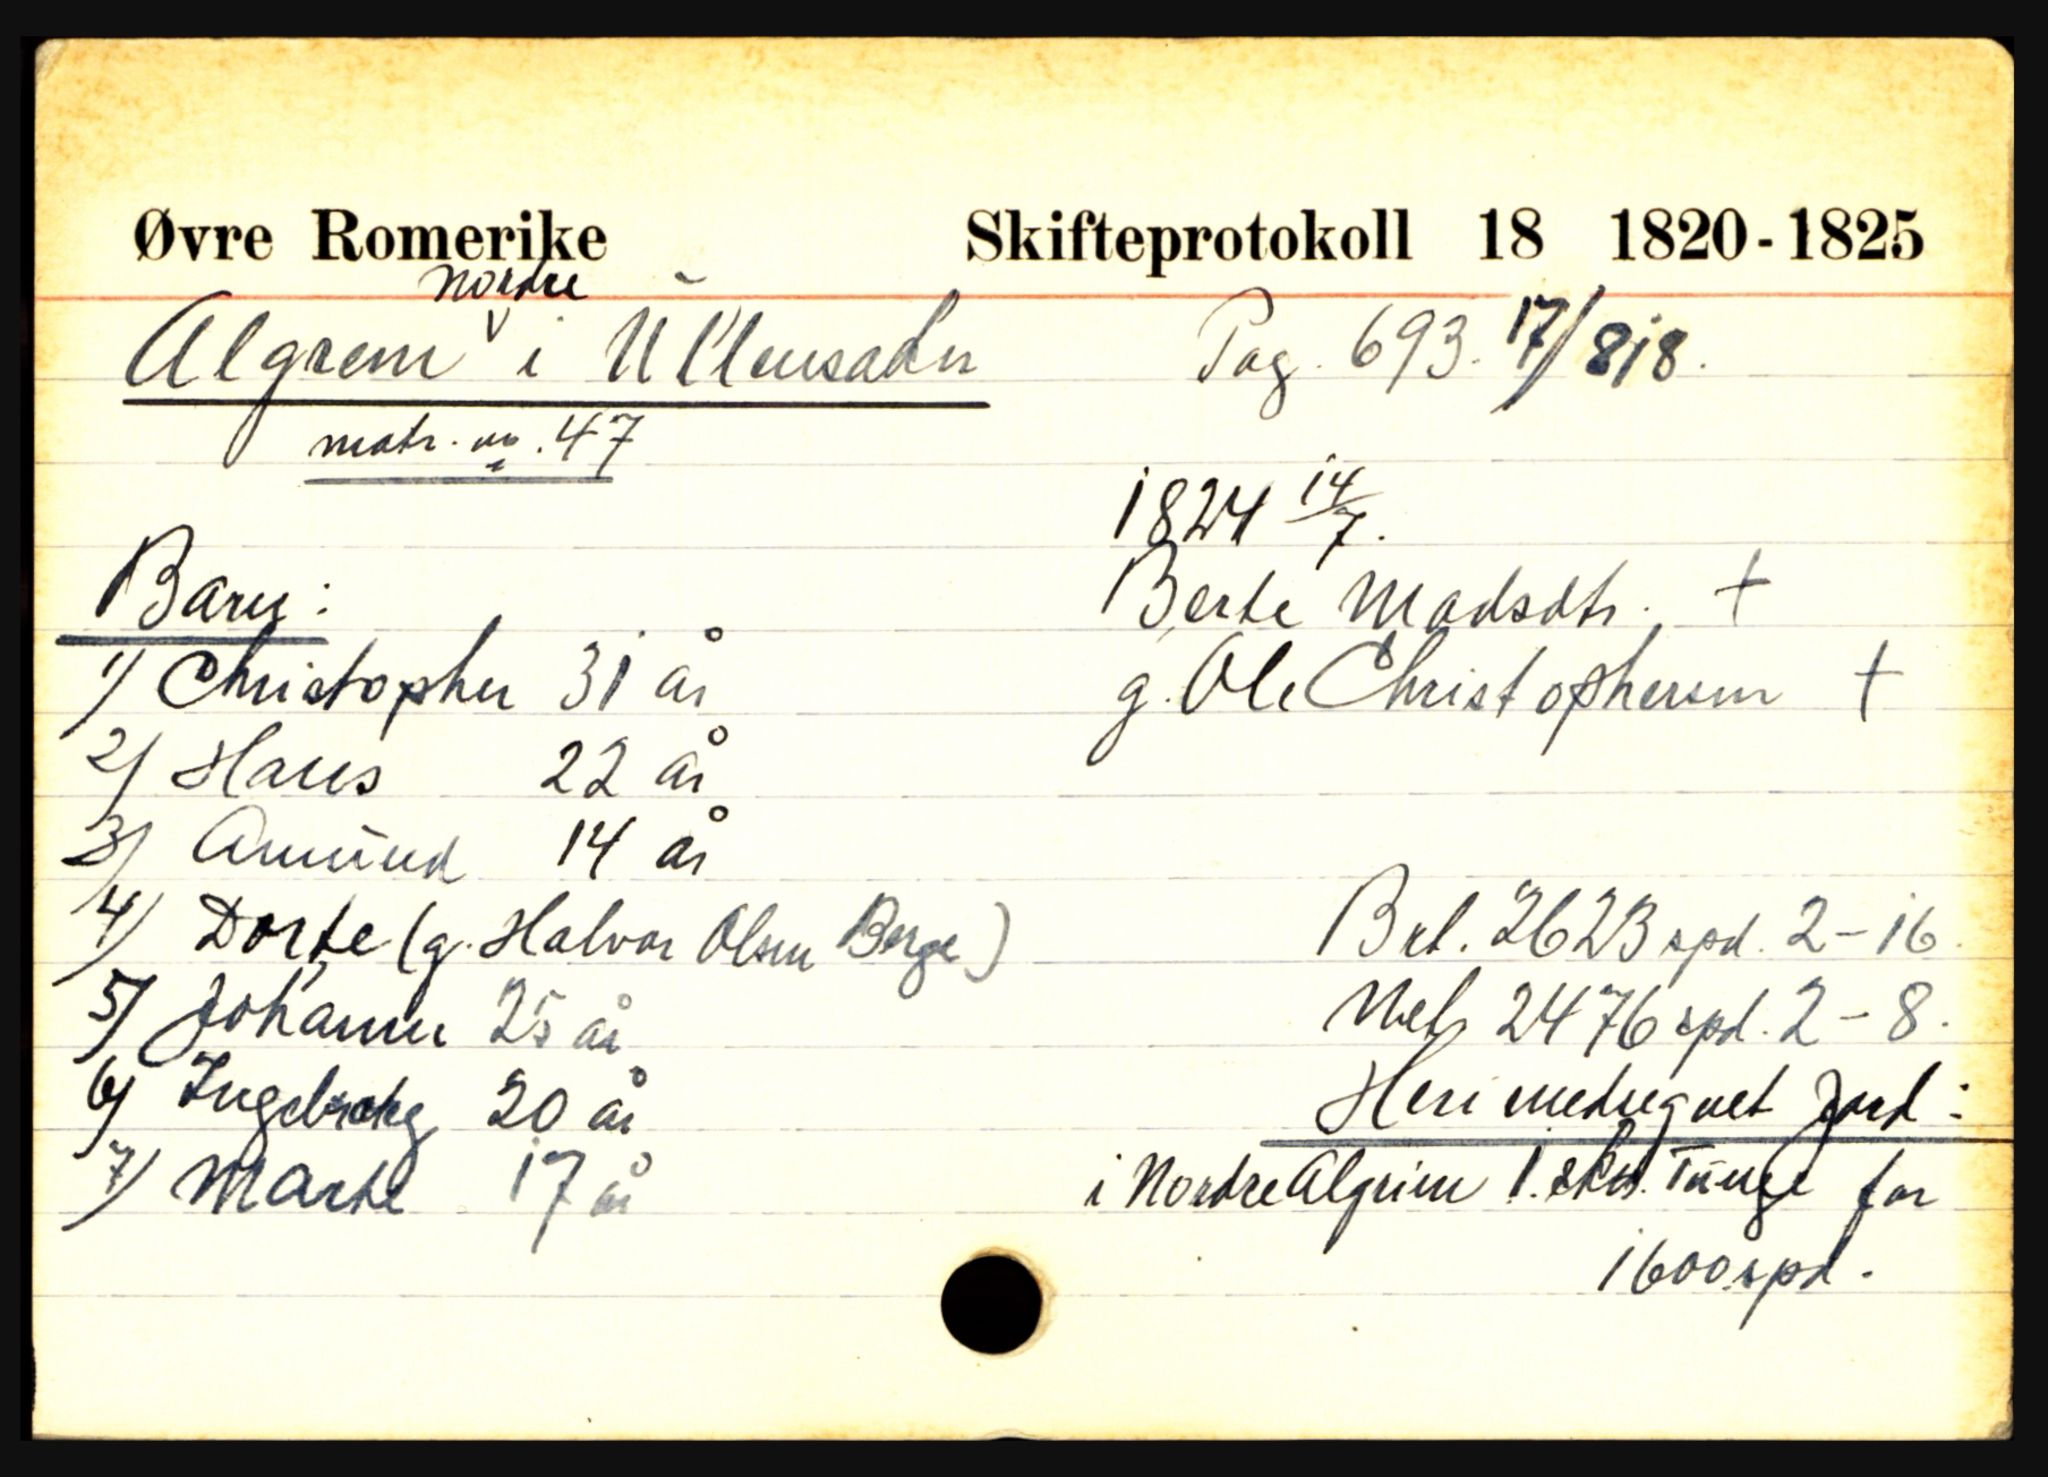 Øvre Romerike Skifteprotokoll 18 1820-1825
nordre
Algrem i Ullensaker Pag. 693. 17/818.
matr. no. 47
1824 14/7.
Barn:
Berte Madsdtr. +
g. Ole Christophersen +
1) Christopher 31 år
2) Hans 22 år
3) Amund 14 år
4) Dorte (g. Halvor Olsen Berge)
5) Johanne 25 år
6) Ingeborg 20 år
7) Marte 17 år
Brt. 2623 spd. 2-16.
Net. 2476 spd. 2-8.
Heri medregnet Jord:
i Nordre Algrim 1. skn. Tunge for
1600 spd.